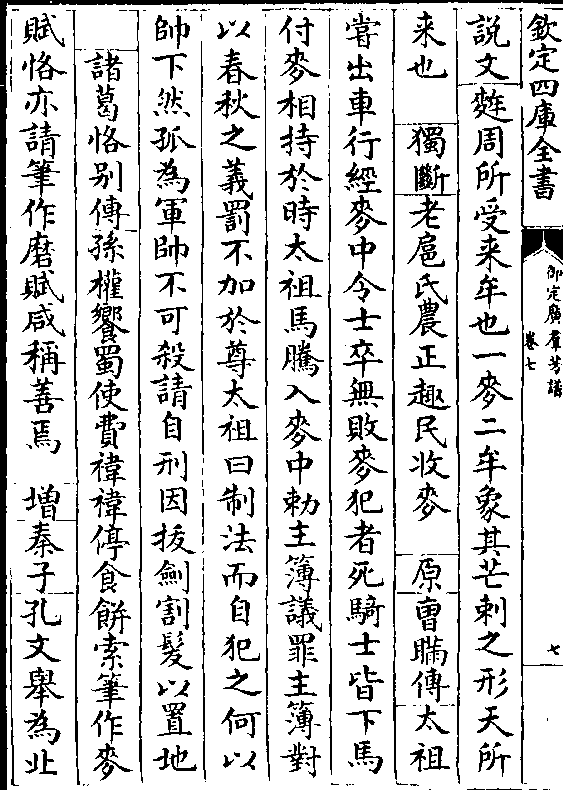 欽定四庫全書
御定廣羣芳譜
卷七
七
說文麰周所受来牟也一麥二牟象其芒刺之形天所
来也　獨斷老扈氏農正趣民收麥　原曹瞞傳太祖
嘗出車行經麥中令士卒無敗麥犯者死騎士皆下馬
付麥相持於時太祖馬騰入麥中勅主簿議罪主簿對
以春秋之義罰不加於尊太祖曰制法而自犯之何以
帥下然孤為軍帥不可殺請自刑因拔劍割髮以置地
諸葛恪别傳孫權饗蜀使費禕禕停食餅索筆作麥
賦恪亦請筆作磨賦咸稱善焉　增秦子孔文舉為北